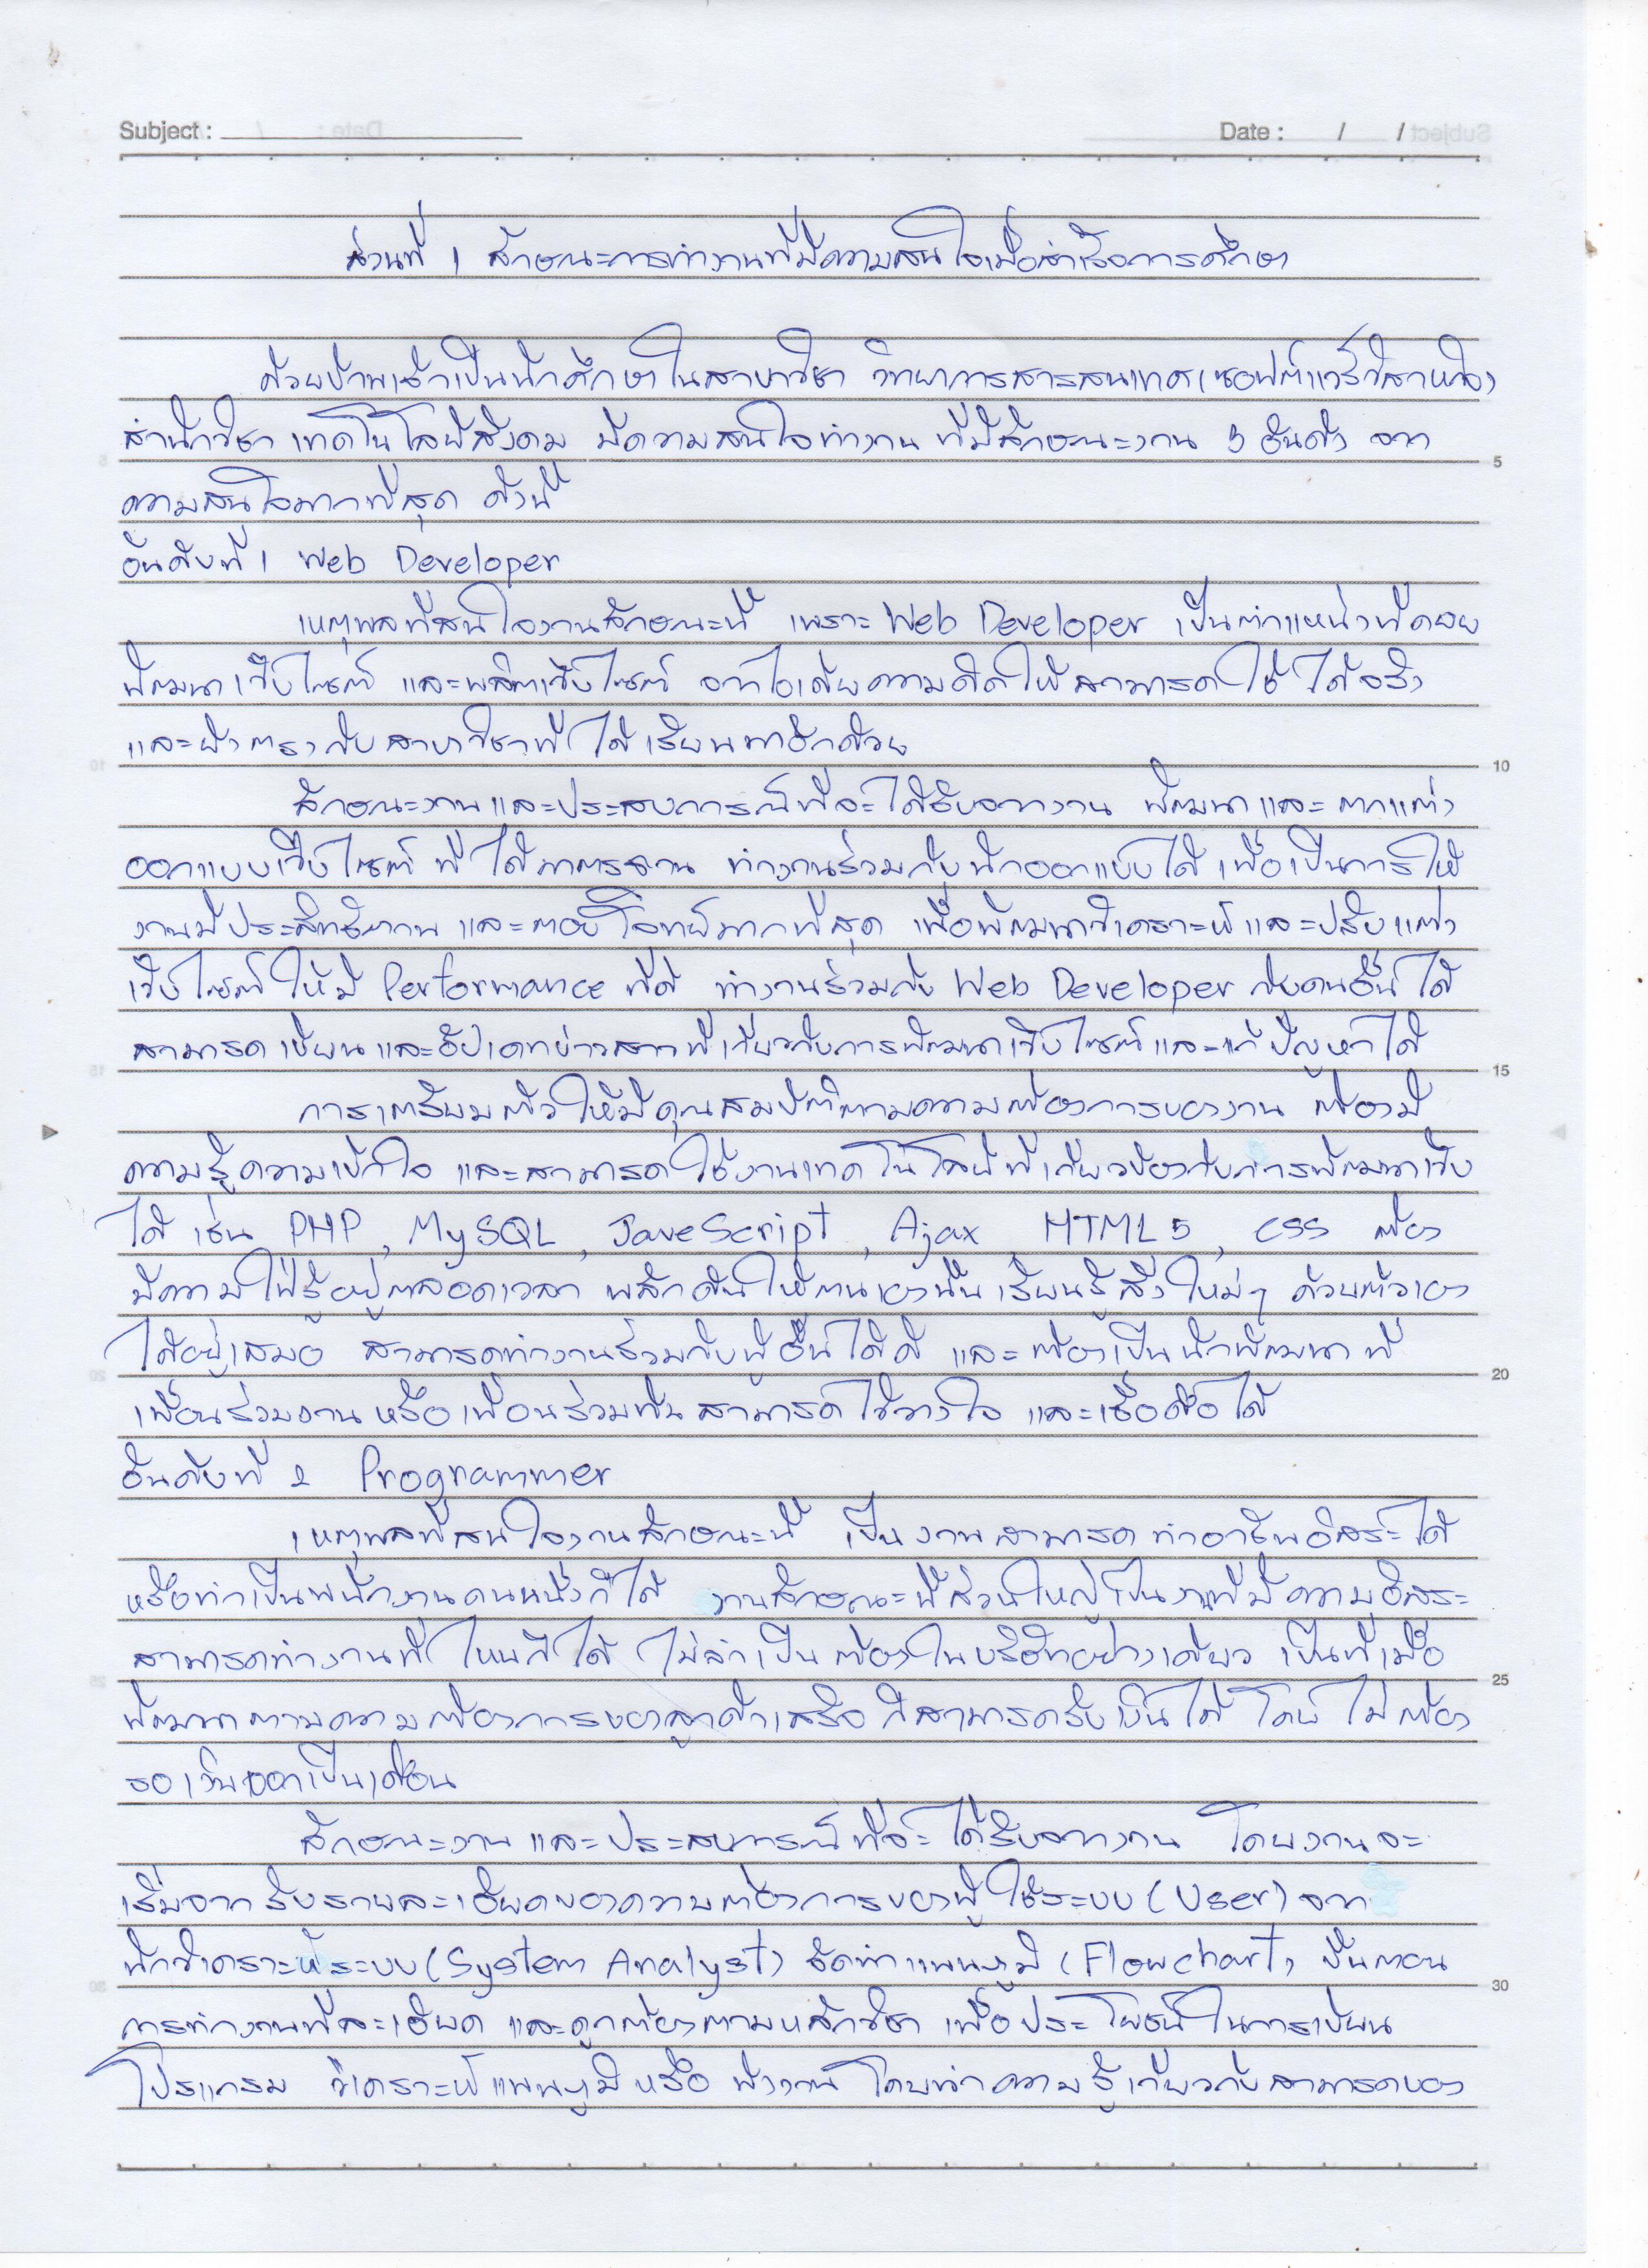 Subject :
Date : / /
ส่วนที่ 1 ลักษณะการทำงานที่มีความสนใจเมื่อสำเร็จการศึกษา
ด้วยข้าพเจ้าเป็นนักศึกษาในสาขาวิชา วิทยาการสารสนเทศ (ซอฟต์แวร์วิสาหกิจ)
สำนักวิชา เทคโนโลยีสังคม มีความสนใจทำงาน ที่มีลักษณะงาน 3 อันดับ จาก
ความสนใจมากที่สุด ดังนี้
อันดับที่ 1 Web Developer
เหตุผลที่สนใจงานลักษณะนี้ เพราะ Web Developer เป็นตำแหน่งที่คอย
พัฒนาเว็บไซต์ และผลิตเว็บไซต์ จากไอเดียความคิดให้สามารถใช้ได้จริง
และยังตรงกับสาขาวิชาที่ได้เรียนมาอีกด้วย
ลักษณะงานและประสบการณ์ที่จะได้รับจากงาน พัฒนาและตกแต่ง
ออกแบบเว็บไซต์ ที่ได้มาตรฐาน ทำงานร่วมกับนักออกแบบได้ เพื่อเป็นการให้
งานมีประสิทธิภาพ และตอบโจทย์มากที่สุด เพื่อพัฒนาวิเคราะห์และปรับแต่ง
เว็บไซต์ให้มี Performance ที่ดี ทำงานร่วมกับ Web Developer กับคนอื่นได้
สามารถเขียนและอัปเดทข่าวสารที่เกี่ยวกับการพัฒนาเว็บไซต์และแก้ปัญหาได้
การเตรียมตัวให้มีคุณสมบัติตามความต้องการของงาน ต้องมี
ความรู้ความเข้าใจ และสามารถใช้งานเทคโนโลยีที่เกี่ยวข้องกับการพัฒนาเว็บ
ได้ เช่น PHP , MySQL , JaveScript , Ajax HTML 5 , CSS ต้อง
มีความใฝ่รู้อยู่ตลอดเวลา ผลักดันให้ตนเองนั้นเรียนรู้สิ่งใหม่ๆ ด้วยตัวเอง
ได้อยู่เสมอ สามารถทำงานร่วมกับผู้อื่นได้ดี และต้องเป็นนักพัฒนาที่
เพื่อนร่วมงานหรือเพื่อนร่วมทีมสามารถไว้วางใจ และเชื่อถือได้
อันดับที่ 2 Programmer
เหตุผลที่สนใจงานลักษณะนี้ เป็นงานสามารถ ทำอาชีพอิสระได้
หรือทำเป็นพนักงานคนหนึ่งก็ได้ งานลักษณะนี้ส่วนใหญ่เป็นงานที่มีความอิสระ
สามารถทำงานที่ไหนก็ได้ ไม่จำเป็นต้องในบริษัทอย่างเดียว เป็นที่เมื่อ
พัฒนาตามความต้องการของลูกค้าเสร็จ ก็สามารถรับเงินได้ โดย ไม่ต้อง
รอเงินออกเป็นเดือน
ลักษณะงาน และประสบการณ์ที่จะได้รับจากงาน โดยงานจะ
เริ่มจาก รับรายละเอียดของความต้องการของผู้ใช้ระบบ (User) จาก
นักวิเคราะห์ระบบ (System Analyst) จัดทำแผนภูมิ (Flowchart) ขั้นตอน
การทำงานที่ละเอียด และถูกต้องตามหลักวิชา เพื่อประโยชน์ในการเขียน
โปรแกรม วิเคราะห์แผนภูมิหรือ ผังงาน โดยนำความรู้เกี่ยวกับสามารถของ